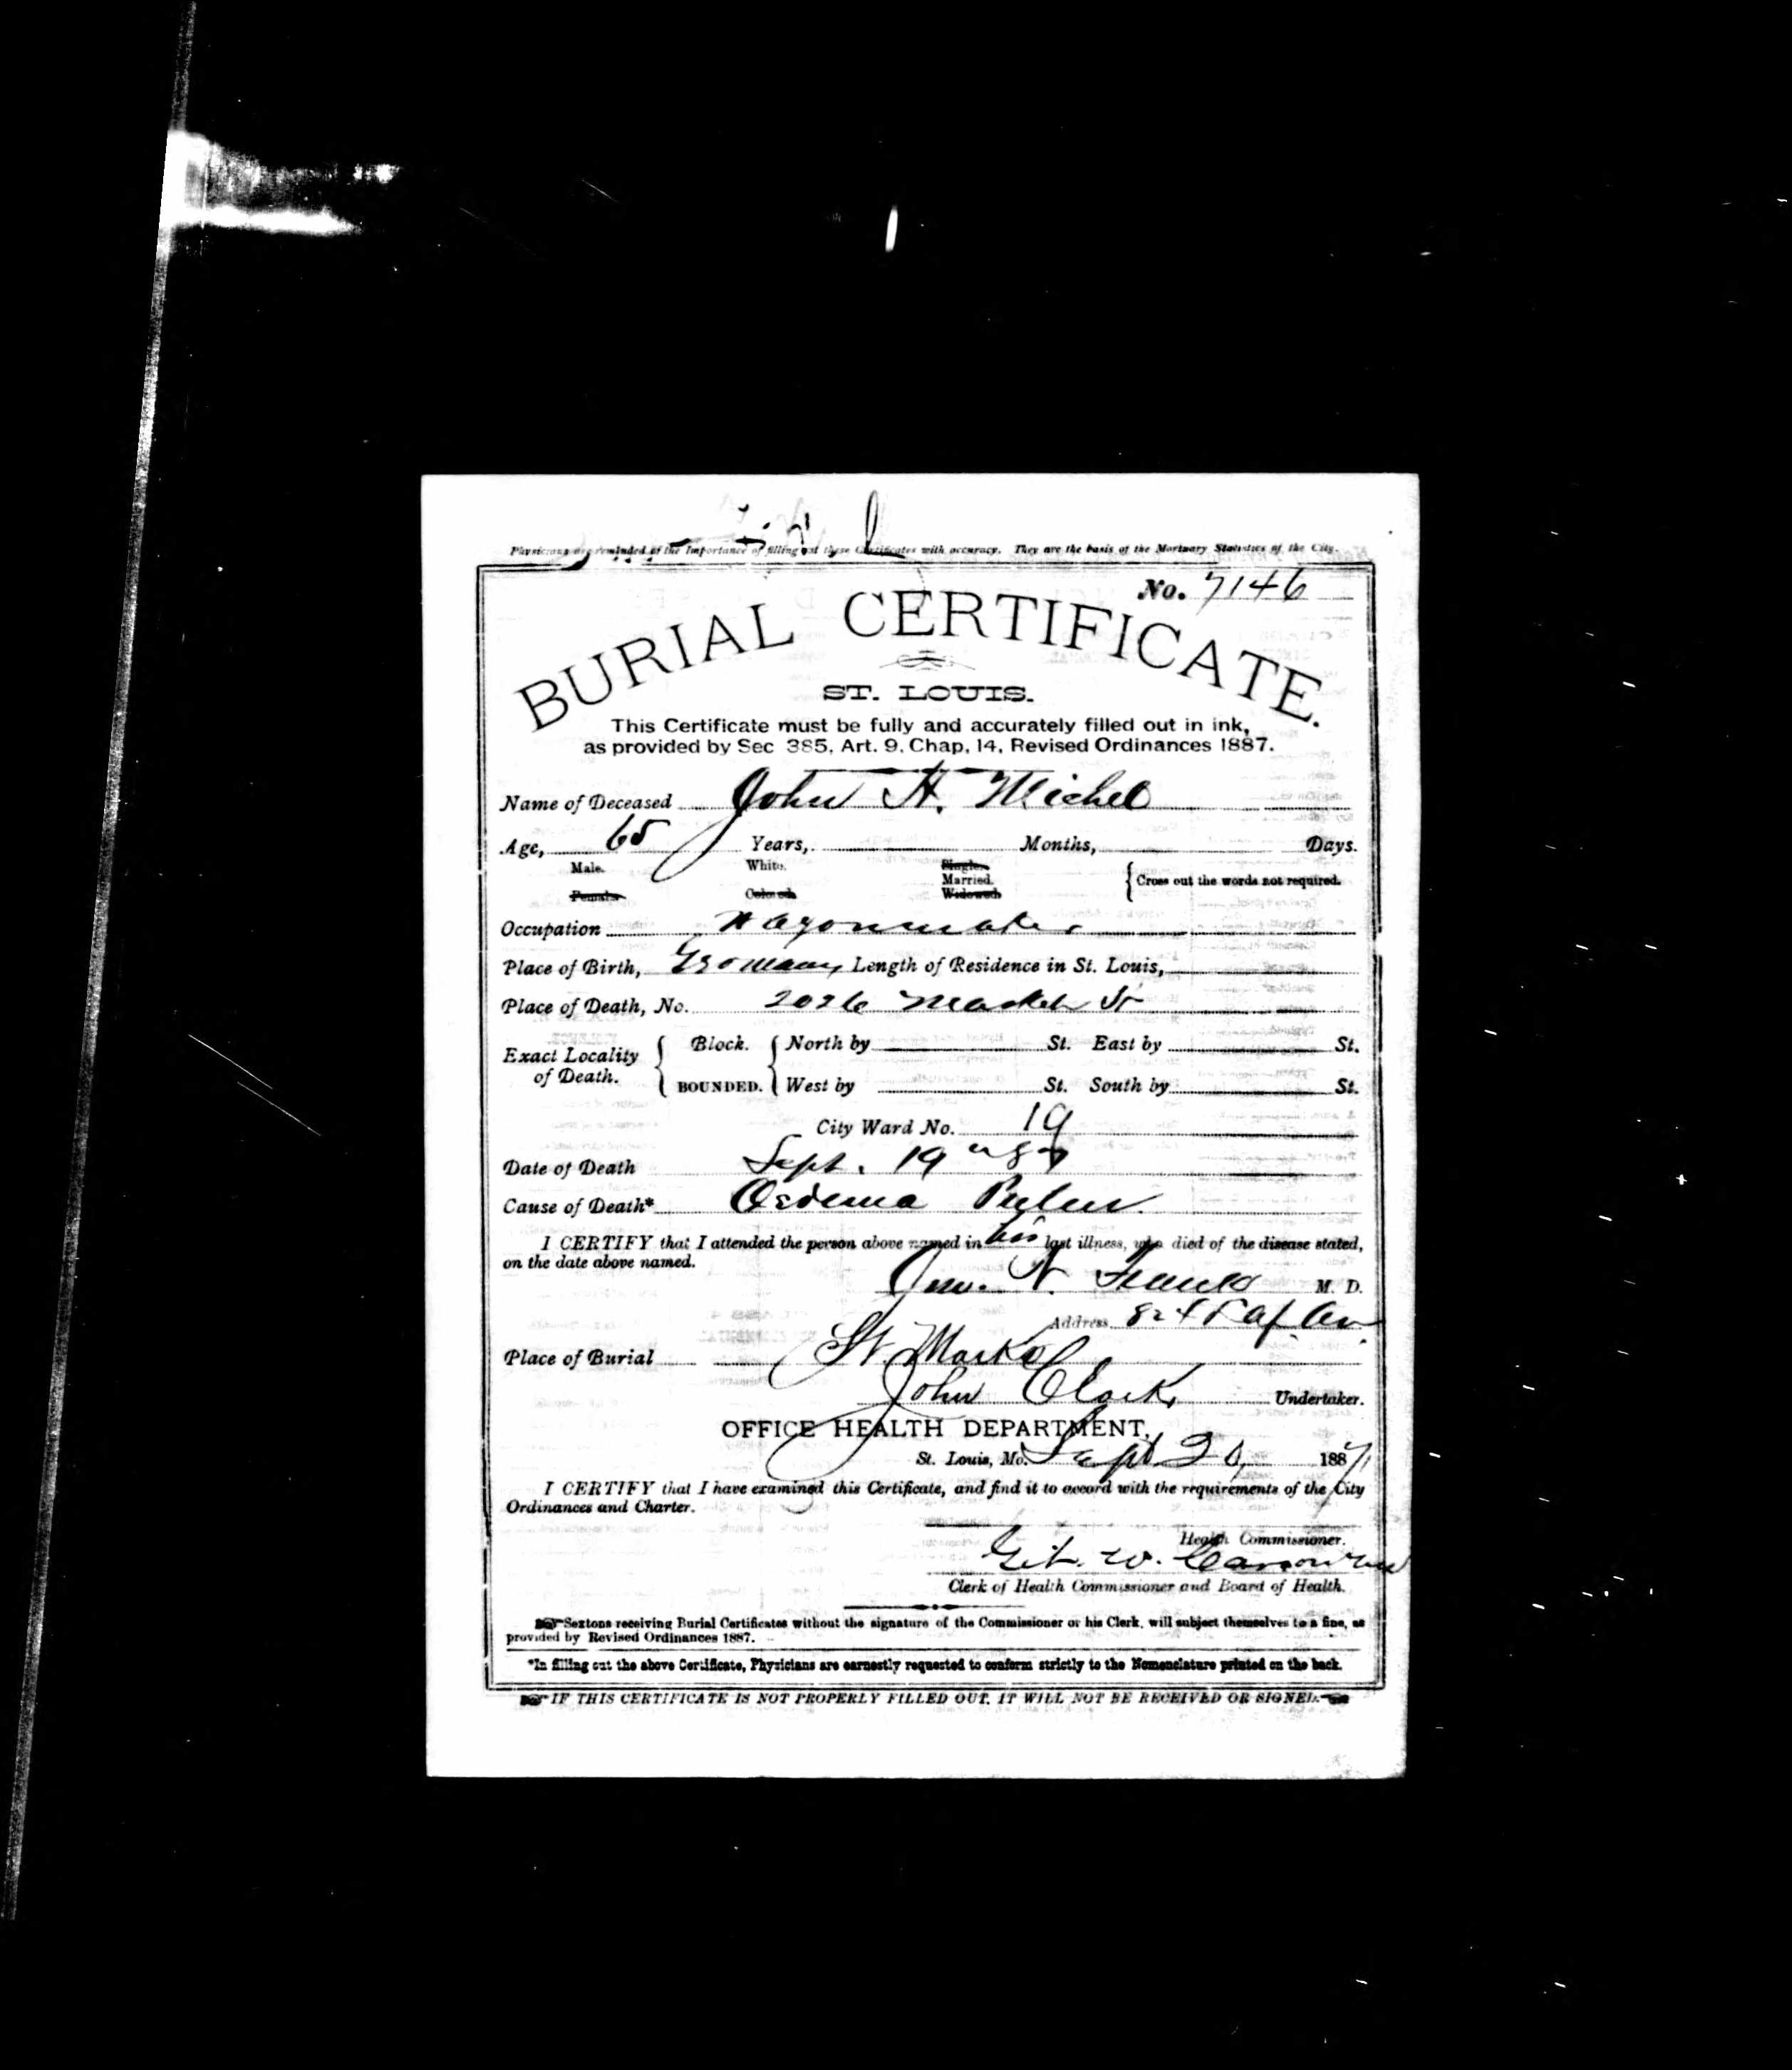 Physicians are reminded of the Importance of filling out these Certificates with accuracy. They are the basis of the Mortuary Statistics of the City.
No. 7146
BURIAL CERTIFICATE.
ST. LOUIS.
This Certificate must be fully and accurately filled out in ink,
as provided by Sec 385, Art. 9, Chap. 14, Revised Ordinances 1887.
Name of Deceased John H. Michel
Age, 65 Years, Months, Days.
Male. White. Single.
Married. Cross out the words not required.
Female. Colored. Widowed.
Occupation Wagonmaker
Place of Birth, Germany Length of Residence in St. Louis,
Place of Death, No. 2026 Market St
Exact Locality of Death. Block. North by St. East by St.
BOUNDED. West by St. South by St.
City Ward No. 19
Date of Death Sept. 19 87
Cause of Death* Oedema Pulm.
I CERTIFY that I attended the person above named in his last illness, who died of the disease stated,
on the date above named.
Jno. N. Frank M. D.
Address 824 Laf. Av
Place of Burial St. Marks
John Clark Undertaker.
OFFICE HEALTH DEPARTMENT,
St. Louis, Mo. Sept 20, 1887
I CERTIFY that I have examined this Certificate, and find it to accord with the requirements of the City
Ordinances and Charter.
Health Commissioner.
W.
Clerk of Health Commissioner and Board of Health.
Sextons receiving Burial Certificates without the signature of the Commissioner or his Clerk, will subject themselves to a fine, as
provided by Revised Ordinances 1887.
*In filling out the above Certificate, Physicians are earnestly requested to conform strictly to the Nomenclature printed on the back.
IF THIS CERTIFICATE IS NOT PROPERLY FILLED OUT, IT WILL NOT BE RECEIVED OR SIGNED.